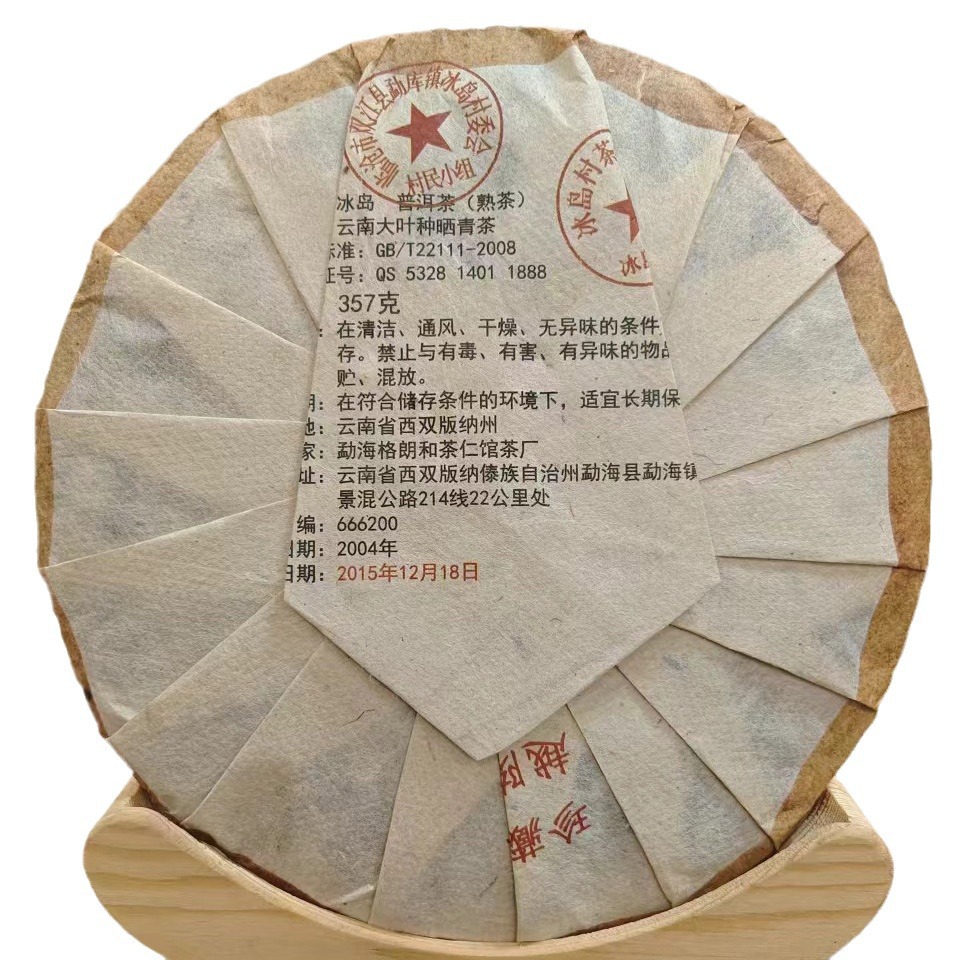 临沧市双江县勐库镇冰岛村委会
村民小组
冰岛村茶
冰
冰岛 普洱茶（熟茶）
云南大叶种晒青茶
标准：GB/T22111-2008
证号：QS 5328 1401 1888
357克
：在清洁、通风、干燥、无异味的条件
存。禁止与有毒、有害、有异味的物品
贮、混放。
期：在符合储存条件的环境下，适宜长期保
地：云南省西双版纳州
家：勐海格朗和茶仁馆茶厂
址：云南省西双版纳傣族自治州勐海县勐海镇
景混公路214线22公里处
编：666200
日期：2004年
日期：2015年12月18日
越陈
珍藏